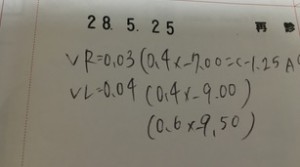 28.5.25 再診
VR=0.03(0.4×-7.00=c-1.25A
VL=0.04(0.4×-9.00)
(0.6×-9.50)